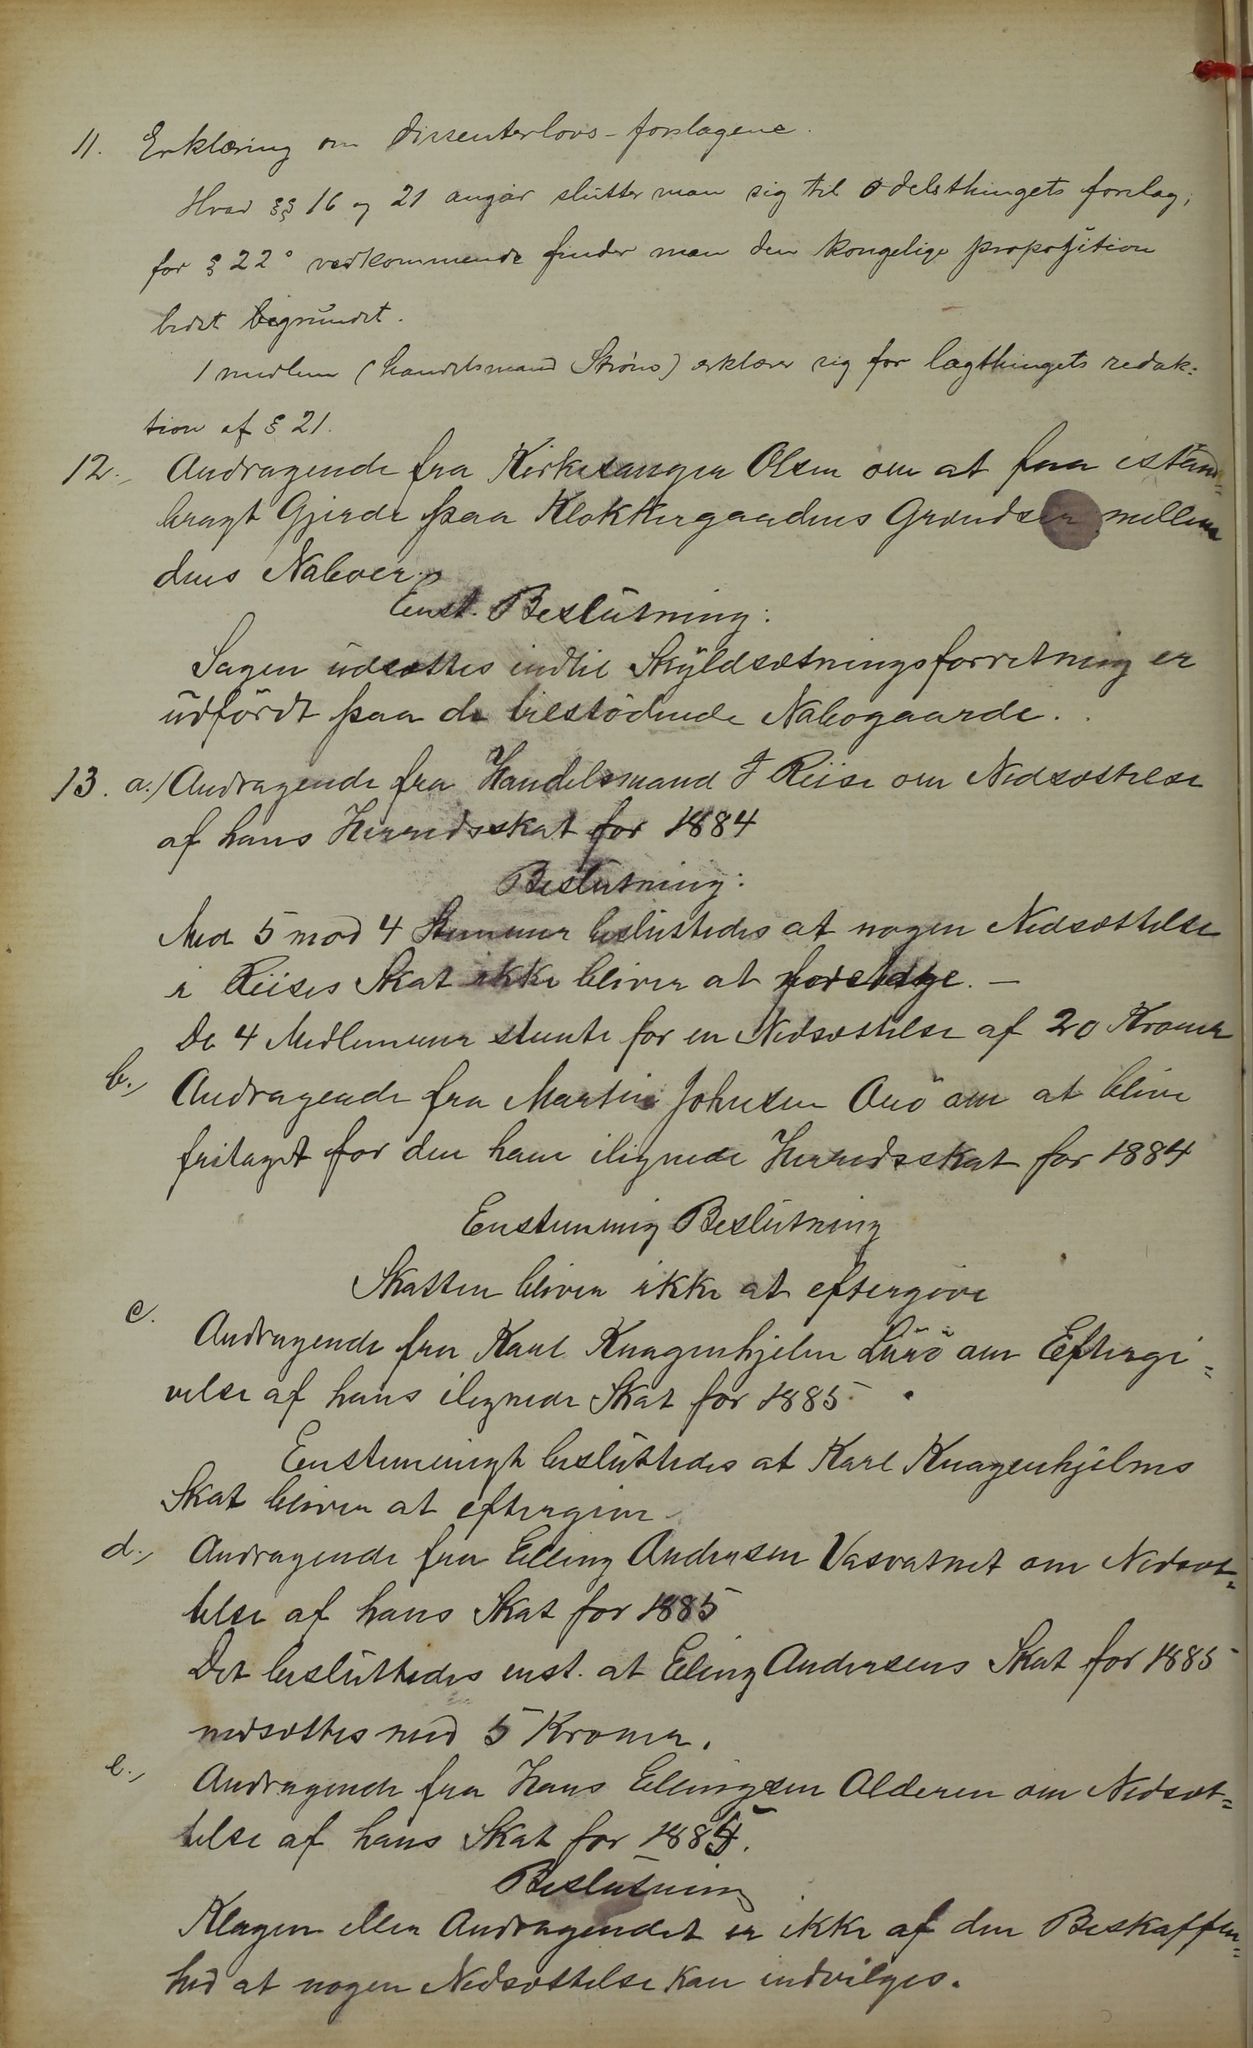 11. Erklæring om dissenterlovs-forslagene.
Hvad §§ 16 og 21 angår slutter man sig til odelsthingets forslag,
for § 22° vedkommende finder man den kongelige proposition
bedst begrundet.
1 medlem (handelsmand Strøm) erklærer sig for lagthingets redak-
tion af § 21.
12., Andragende fra Kirkesanger Olsen om at faa istand-
bragt Gjerde paa Klokkergaardens Grændser mellem
dens Naboer.
Enst. Beslutning:
Sagen udsættes indtil Skyldsætningsforretning er
udfördt paa de tilstödende Nabogaarde.
13. a./ Andragende fra Handelsmand J Riise om Nedsættelse
af hans Herredsskat for 1884
Beslutning:
Med 5 mod 4 Stemmer besluttedes at nogen Nedsættelse
i Riises Skat ikke bliver at foretage. —
De 4 Medlemmer stemte for en Nedsættelse af 20 Kroner
b., Andragende fra Martin Johnsen Onö om at blive
fritaget for den ham ilignede Herredsskat for 1884
Enstemmig Beslutning
Skatten bliver ikke at eftergive
c. Andragende fra Karl Knagenhjelm Lurö om Eftergi-
velse af hans ilignede Skat for 1885.
Enstemmigt besluttedes at Karl Knagenhjelms
Skat bliver at eftergive
d., Andragende fra Elling Andersen Vasvatnet om Nedsæt-
telse af hans Skat for 1885
Det besluttedes enst. at Elling Andersens Skat for 1885
nedsættes med 5 Kroner.
e., Andragende fra Hans Ellingsen Alderen om Nedsæt-
telse af hans Skat for 1885.
Beslutning
Klagen eller Andragendet er ikke af den Beskaffen-
hed at nogen Nedsættelse kan indvilges.